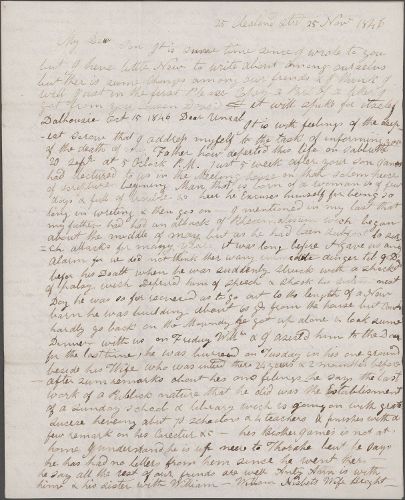 25 Novr 1846
My Dear Son It is sume time since I wrote to you
but I have little New to write about among ourselves
but ther is sume changes among our frends & I think I
will just in the first Place Copy a Part of a
got from it will spake for itself
Dalhousie Oct 15 1846 Dear Uncal It is with feelings of the deep-
est sorow that I adress myself to the task of informing you
of the death of my Father how departed this life on Sabbath
20 Sept at 5 Oclock P.M. Just 3 week after your son James
had lectured to us in the Meeting house on that solem piece
of Scripture begining Man that is born of a woman is of few
days & full of trouble as heer he Excuses himself for being so
long in writing & then gos on as I mentioned in my last that
my father had had an attack of wich began
about the middle of June but as he had been subject to su-
ch attacks for many years it was long before it gave us any
alarm for we did not think ther was imidate dinger til 9 Days
befor his Deatt when he was suddenly struck with a shock
of palsy wich Deprived him of speech & shook his
Day he was so far recovered as to go out to the length of a New
barn he was building about from the house but Could
hardly go back on the Monday he got up alone & took sume
Dinner with us on Friday & I asisted him to the Door
for the last time he was buried on Tuesday in his one ground
beside his Wife who was intered there 24 years & 2 months before
after sum remarks about his one filings he say the last
work of a Publick nature that he did was the Establisment
of a Sunday School & library wich is going on with great
sucess heaving about scholars 4 teachers & finishes with a
few remark on his Carectur &c — his Brother James is not at
home I understand he is up near to he Says
he has had no letter from him since he went ther
he Say all the rest of our friends are well Anty Ann is with
him & her sister with William — William Nisbets Wife